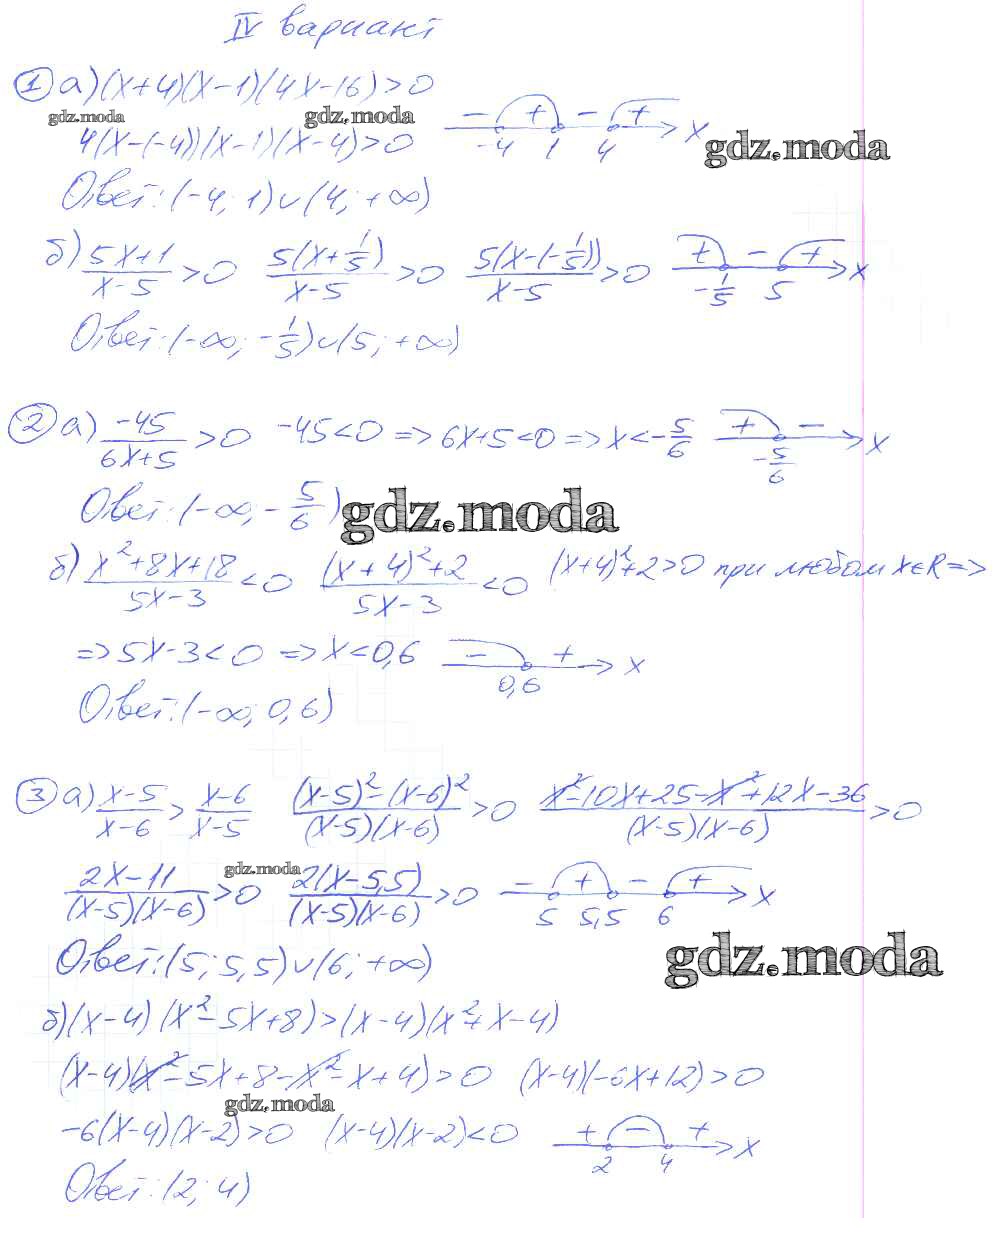 IV вариант
① а) (x+4)(x-1)(4x-16)>0
gdz.moda gdz.moda
4(x-(-4))(x-1)(x-4)>0 - + - + -4 1 4 x
gdz.moda
Ответ: (-4; 1)∪(4; +∞)
б) (5x+1)/(x-5)>0 5(x+1/5)/(x-5)>0 5(x-(-1/5))/(x-5)>0 + - + -1/5 5 x
Ответ: (-∞; -1/5)∪(5; +∞)
② а) -45/(6x+5)>0 -45<0 => 6x+5<0 => x<-5/6 + - -5/6 x
Ответ: (-∞; -5/6)
gdz.moda
б) (x²+8x+18)/(5x-3)<0 ((x+4)²+2)/(5x-3)<0 (x+4)²+2>0 при любом x∈R =>
=> 5x-3<0 => x<0,6 - + 0,6 x
Ответ: (-∞; 0,6)
③ а) (x-5)/(x-6)>(x-6)/(x-5) ((x-5)²-(x-6)²)/((x-5)(x-6))>0 (x²-10x+25-x²+12x-36)/((x-5)(x-6))>0
gdz.moda
(2x-11)/((x-5)(x-6))>0 2(x-5,5)/((x-5)(x-6))>0 - + - + 5 5,5 6 x
Ответ: (5; 5,5)∪(6; +∞)
gdz.moda
б) (x-4)(x²-5x+8)>(x-4)(x²+x-4)
(x-4)(x²-5x+8-x²-x+4)>0 (x-4)(-6x+12)>0
gdz.moda
-6(x-4)(x-2)>0 (x-4)(x-2)<0 + - + 2 4 x
Ответ: (2; 4)